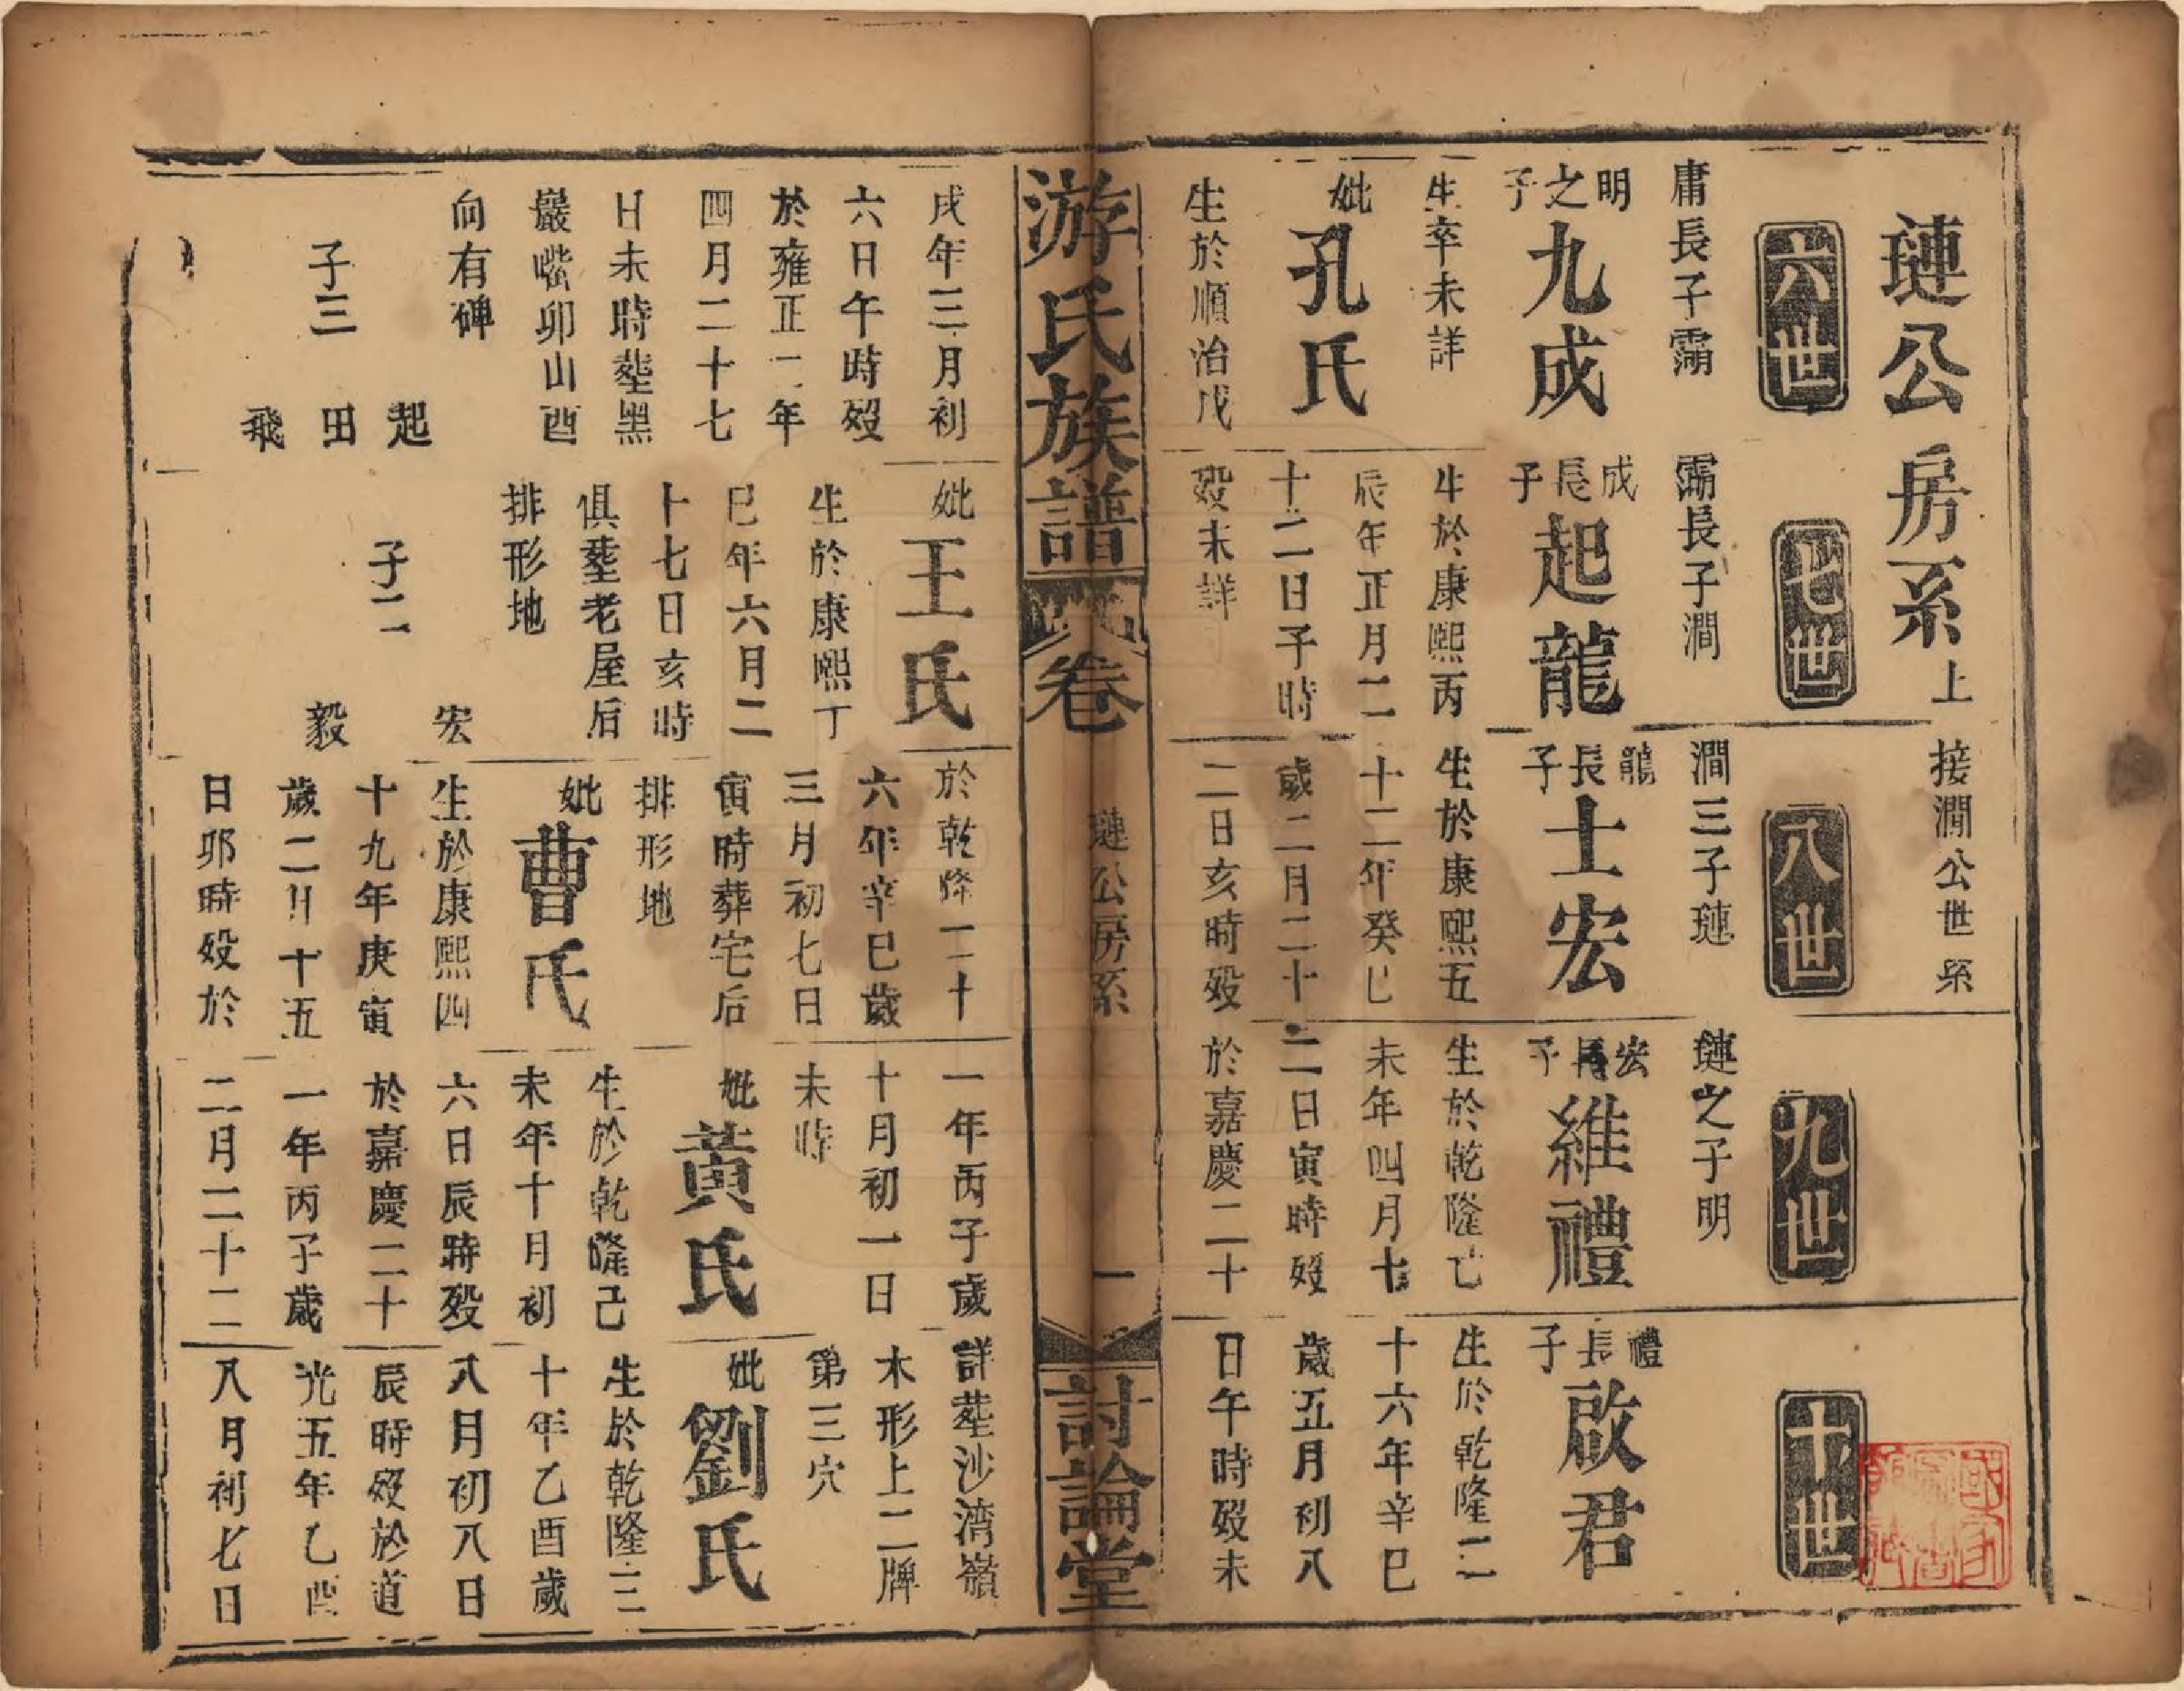 璉公房系上
接澗公世系
六世
七世
八世
九世
十世
庸長子霸
明之子
九成
生卒未詳
妣
孔氏
生於順治戊
霸長子澗
成長子
起龍
生於康熙丙
辰年正月二
十二日子時
歿未詳
澗三子璉
龍長子
士宏
生於康熙五
十二年癸巳
歲二月二十
二日亥時歿
璉之子明
宏長子
維禮
生於乾隆乙
未年四月七
二日寅時歿
於嘉慶二十
禮長子
啟君
生於乾隆二
十六年辛巳
歲五月初八
日午時歿未
游氏族譜
卷
璉公房系
一
討論堂
戌年三月初
六日午時歿
於雍正二年
四月二十七
日未時塟黑
巖嘴卯山酉
向有碑
子三
起
田
飛
妣
王氏
生於康熙丁
巳年六月二
十七日亥時
俱塟老屋后
排形地
子二
宏
毅
於乾隆二十
六年辛巳歲
三月初七日
寅時葬宅后
排形地
妣
曹氏
生於康熙四
十九年庚寅
歲二月十五
日卯時歿於
一年丙子歲
十月初一日
未時
妣
黃氏
生於乾隆己
未年十月初
六日辰時歿
於嘉慶二十
一年丙子歲
二月二十二
詳塟沙湾嶺
木形上二牌
第三穴
妣
劉氏
生於乾隆三
十年乙酉歲
八月初八日
辰時歿於道
光五年乙酉
八月初七日